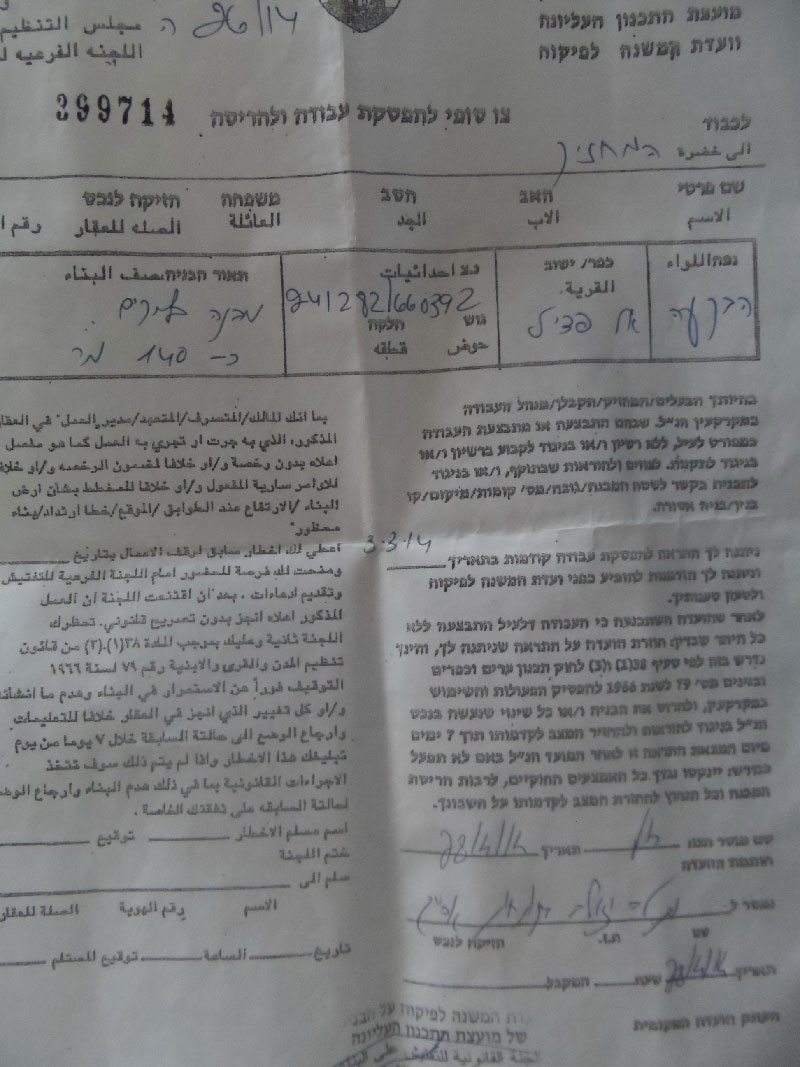 מועצת התכנון העליונה
וועדת המשנה לפיקוח
مجلس التنظيم
اللجنه الفرعيه
ה 26/14
399714
צו סופי להפסקת עבודה ולהריסה
לכבוד
الى حضرة המחזיק
שם פרטי האב הסב משפחה הזיקה לנכס
الاسم الاب الجد العائلة الصله للعقار رقم
נפה/اللواء
הבקעה
כפר/ישוב
القرية
אל פציל
נ.צ احداثيات
241282/660392
גוש חלקה
حوض قطعه
תאור הבניה/وصف البناء
מבנה בלוקים
כ- 140 מר
בהיותך הבעלים/המחזיק/הקבלן/מנהל העבודה
במקרקעין הנ"ל, שבהם התבצעה או מתבצעת העבודה
כמפורט לעיל, ללא רשיון ו/או בניגוד לקבוע ברשיון ו/או
בניגוד לתקנות, לצווים ולהוראות שבתוקף, ו/או בניגוד
לתכנית בקשר לשטח המבנה/גובה/מס' קומות/מיקום/קו
בנין/בניה אסורה.
ניתנה לך התראה להפסקת עבודה קודמת בתאריך 3.3.14
וניתנה לך הזדמנות להופיע בפני ועדת המשנה לפיקוח
ולטעון טענותיך.
לאחר שהועדה השתכנעה כי העבודה דלעיל התבצעה ללא
כל היתר שבדין, חוזרת הועדה על התראה שניתנה לך, והינך
נדרש בזה לפי סעיף 38(1) (3) לחוק תכנון ערים וכפרים
ובנינים מס' 79 לשנת 1966 להפסיק הפעולות והשימוש
במקרקעין, ולהרוס את הבניה ו/או כל שינוי שנעשה בנכס
הנ"ל בניגוד להוראות ולהחזיר המצב לקדמותו תוך 7 ימים
מיום המצאת התראה זו לאחר המועד הנ"ל באם לא תפעל
כנדרש, יינקטו נגדך כל האמצעים החוקיים, לרבות הריסת
המבנה וכל הנחוץ להחזרת המצב לקדמותו על חשבונך.
שם מוסר הצו תאריך 28/4/14
חותמת הוועדה
נמסר ל
שם ת.ז. הזיקה לנכס
תאריך 28/4/14 שעה המקבל
העתק הועדה המקומית
بما انك المالك/المتصرف/المتعهد/مدير العمل" في العقار
المذكور، الذي به جرت او تجري به العمل كما هو مفصل
اعلاه بدون رخصة و/او خلافا لمضمون الرخصه و/او خلافا
للاوامر سارية المفعول و/او خلافا للمخطط بشان ارض
البناء /الارتفاع عدد الطوابق/الموقع/خط ارتداد/بناء
محظور"
اعطي لك اخطار سابق لوقف الاعمال بتاريخ
ومنحت لك فرصة للحضور امام اللجنة الفرعية للتفتيش
وتقديم ادعاءات . بعد أن اقتنعت اللجنة ان العمل
المذكور اعلاه انجز بدون تصريح قانوني. تحظرك
اللجنة ثانية وعليك بموجب المادة ٣٨(١).(٣) من قانون
تنظيم المدن والقرى والابنية رقم ٧٩ لسنة ١٩٦٦
التوقيف فورا عن الاستمرار في البناء وهدم ما
و/او كل تغيير الذي انجز في العقار خلافا للتعليمات
وارجاع الوضع الى حالته السابقة خلال ٧ يوما من يوم
تبليغك هذا الاخطار واذا لم يتم ذلك سوف تتخذ
الاجراءات القانونية بما في ذلك هدم البناء وارجاع
لحالته السابقه على نفقتك الخاصة .
اسم مسلم الاخطار توقيع
ختم اللجنة
سلم الى
الاسم رقم الهوية الصلة للعقار
تاريخ الساعة توقيع المستلم
המשנה לפיקוח על
של מועצת התכנון העליונה